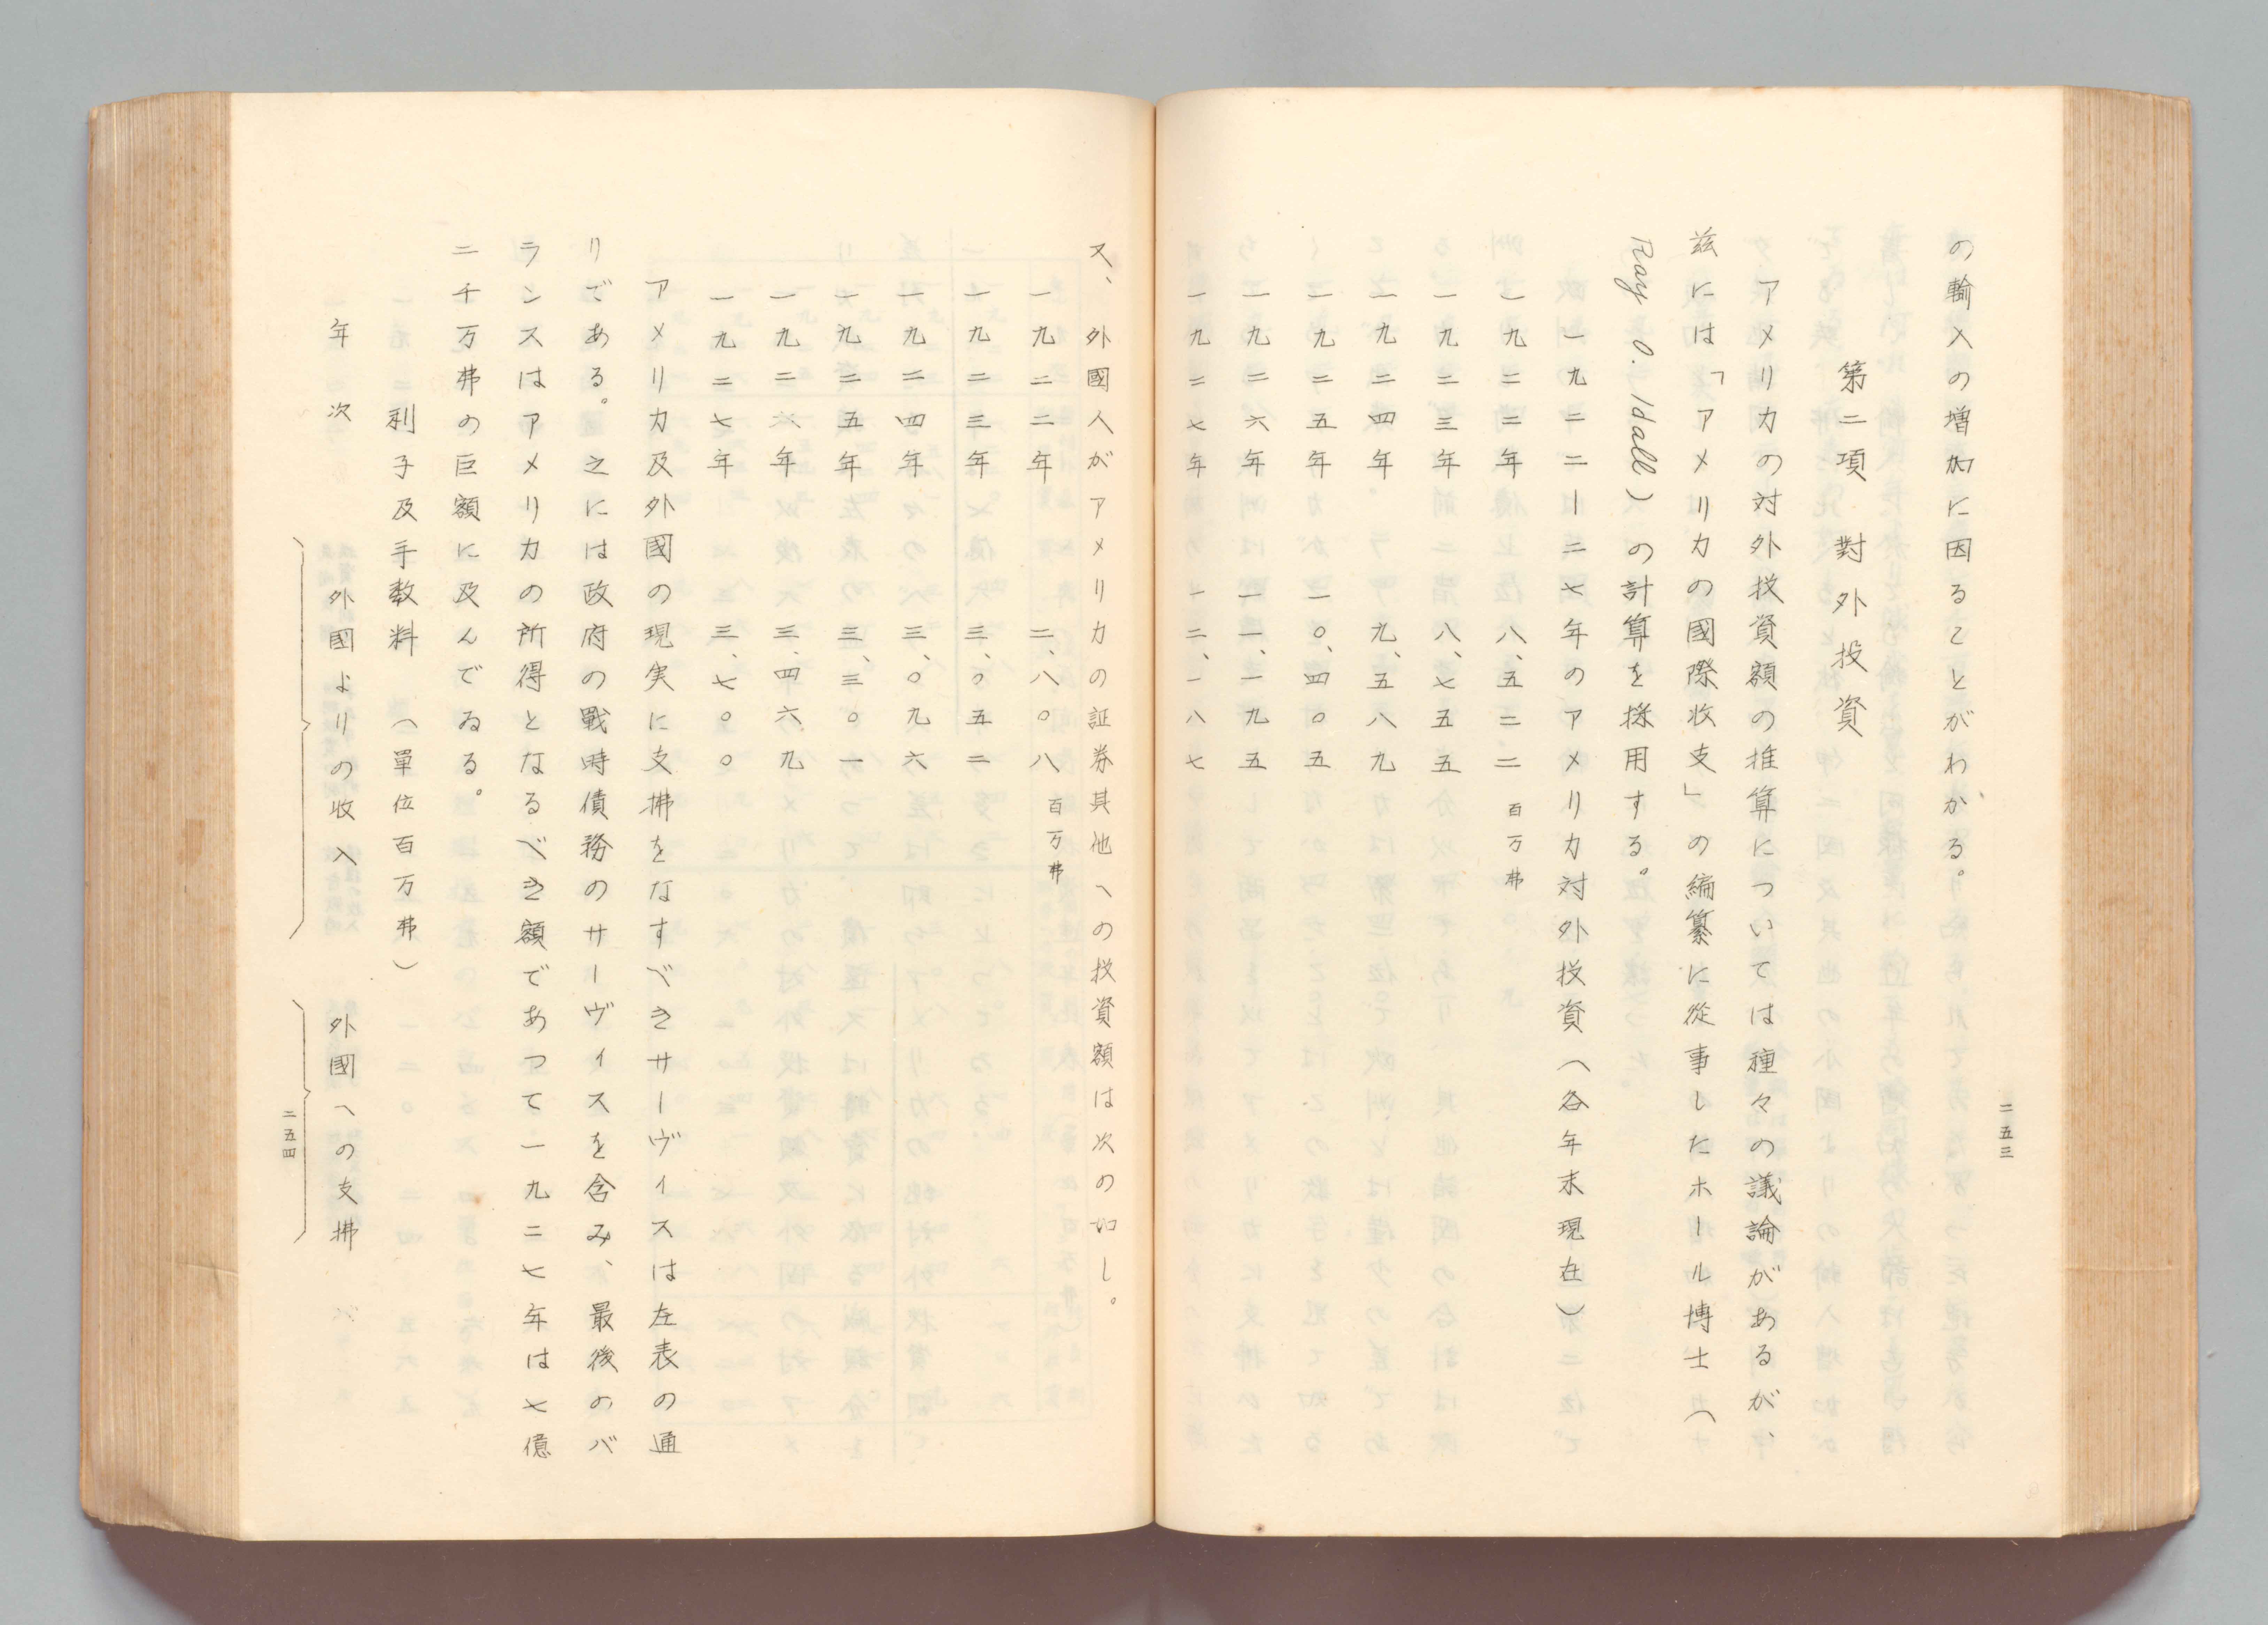 の輸入の増加に因ることがわかる。
第二項　對外投資
アメリカの対外投資額の推算については種々の議論があるが、
茲には「アメリカの國際收支」の編纂に從事したホール博士（
Ray O. Hall）の計算を採用する。
一九二二ー二七年のアメリカ対外投資（各年末現在）
一九二二年　八、五二二百万弗
一九二三年　八、七五五
一九二四年　九、五八九
一九二五年　一〇、四〇五
一九二六年　一一、一九五
一九二七年　一二、一八七
二五三
又、外國人がアメリカの証券其他への投資額は次の如し。
一九二二年　二、八〇八百万弗
一九二三年　三、〇五二
一九二四年　三、〇九六
一九二五年　三、三〇一
一九二六年　三、四六九
一九二七年　三、七〇〇
アメリカ及外國の現実に支拂をなすべきサーヴィスは左表の通
りである。之には政府の戰時債務のサーヴィスを含み、最後のバ
ランスはアメリカの所得となるべき額であつて一九二七年は七億
二千万弗の巨額に及んでゐる。
利子及手数料　（單位百万弗）
年次　外國よりの收入　外國への支拂　バ
二五四